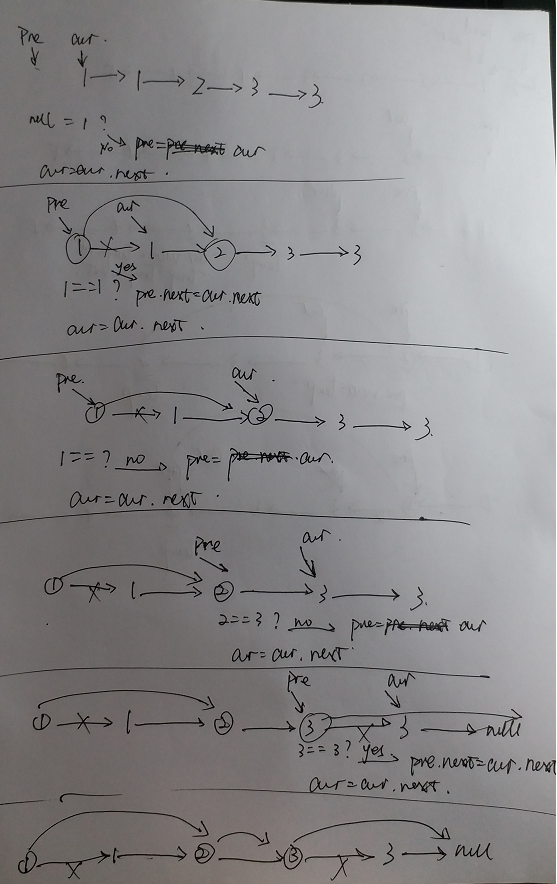 pre cur.
1 → 1 → 2 → 3 → 3.
null = 1 ?
No → pre=pre.next cur
cur=cur.next.
pre cur
1 → 1 → 2 → 3 → 3
1==1 ? yes pre.next=cur.next
cur=cur.next.
pre. cur.
1 → 1 → 2 → 3 → 3.
1== ? no → pre=pre.next.cur.
cur=cur.next.
pre cur.
1 → 1 → 2 → 3 → 3.
2==3 ? no → pre=pre.next cur
cur=cur.next
pre cur
1 → 1 → 2 → 3 → 3 → null
3==3? yes → pre.next=cur.next
cur=cur.next.
1 → 1 → 2 → 3 → 3 → null